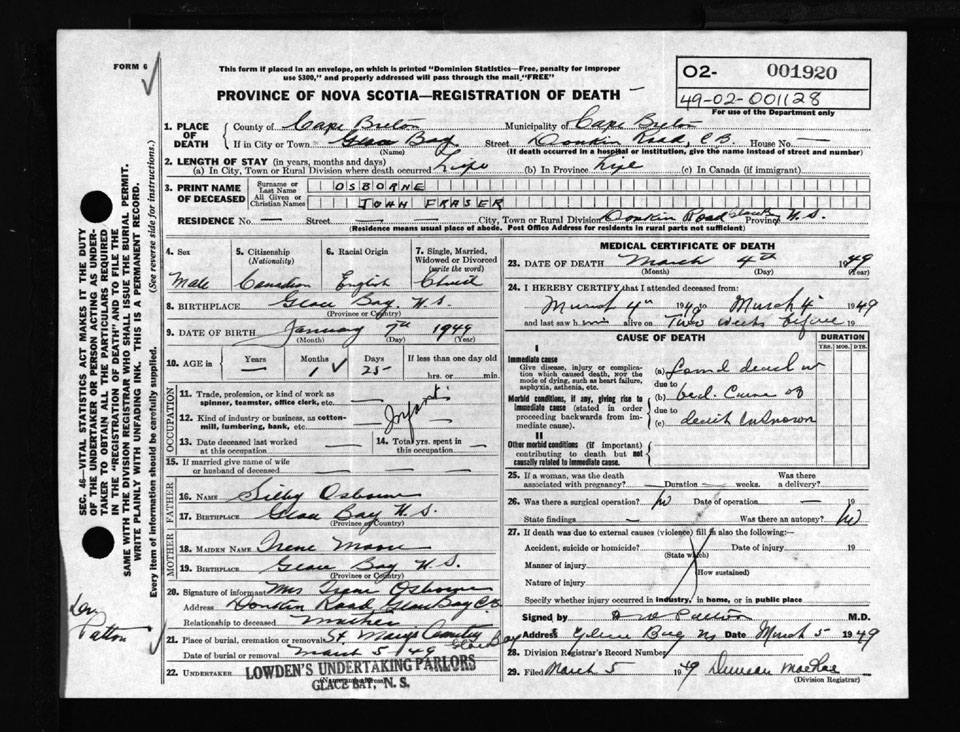 FORM 6
This form if placed in an envelope, on which is printed "Dominion Statistics—Free, penalty for improper
use $300," and properly addressed will pass through the mail "FREE"
PROVINCE OF NOVA SCOTIA—REGISTRATION OF DEATH
O2- 001920
49-02-001128
For use of the Department only
1. PLACE OF DEATH
County of Cape Breton Municipality of Cape Breton
If in City or Town Glace Bay Street Donkin Road, C.B. House No. —
(Name) (If death occurred in a hospital or institution, give the name instead of street and number)
2. LENGTH OF STAY (in years, months and days)
(a) In City, Town or Rural Division where death occurred Life (b) In Province Life (c) In Canada (if immigrant)
3. PRINT NAME OF DECEASED
Surname or Last Name OSBORNE
All Given or Christian Names JOHN FRASER
RESIDENCE No. — Street — City, Town or Rural Division Donkin Road Glace Bay Province N.S.
(Residence means usual place of abode. Post Office Address for residents in rural parts not sufficient)
4. Sex
Male
5. Citizenship
(Nationality)
Canadian
6. Racial Origin
English
7. Single, Married,
Widowed or Divorced
(write the word)
Child
8. BIRTHPLACE Glace Bay, N.S.
(Province or Country)
9. DATE OF BIRTH January 7th 1949
(Month) (Day) (Year)
10. AGE in
Years —
Months 1
Days 25
If less than one day old
hrs. or min.
OCCUPATION
11. Trade, profession, or kind of work as
spinner, teamster, office clerk, etc. —
12. Kind of industry or business, as cotton-
mill, lumbering, bank, etc.
Infant
13. Date deceased last worked
at this occupation —
14. Total yrs. spent in
this occupation —
15. If married give name of wife
or husband of deceased —
FATHER
16. NAME Osborne
17. BIRTHPLACE Glace Bay N.S.
(Province or Country)
MOTHER
18. MAIDEN NAME Irene Moore
19. BIRTHPLACE Glace Bay N.S.
(Province or Country)
20. Signature of informant Mrs Irene Osborne
Address Donkin Road, Glace Bay C.B
Relationship to deceased Mother
21. Place of burial, cremation or removal St Marys Cemetery Glace Bay
Date of burial or removal March 5 /49
22. UNDERTAKER LOWDEN'S UNDERTAKING PARLORS
GLACE BAY, N. S.
MEDICAL CERTIFICATE OF DEATH
23. DATE OF DEATH March 4th 1949
(Month) (Day) (Year)
24. I HEREBY CERTIFY that I attended deceased from:
March 4th 1949 to March 4 1949
and last saw him alive on Two weeks before 19
CAUSE OF DEATH
DURATION
YRS. MOS. DYS.
I
Immediate cause
Give disease, injury or compli-
cation which caused death, not the
mode of dying, such as heart failure,
asphyxia, asthenia, etc.
(a) found dead in
due to
Morbid conditions, if any, giving rise to
immediate cause (stated in order
proceeding backwards from im-
mediate cause).
(b) bed. Cause of
due to
(c) death unknown
II
Other morbid conditions (if important)
contributing to death but not
causally related to immediate cause.
25. If a woman, was the death
associated with pregnancy? — Duration — weeks. Was there
a delivery?
26. Was there a surgical operation? no Date of operation — 19
State findings — Was there an autopsy? no
27. If death was due to external causes (violence) fill in also the following:
Accident, suicide or homicide? Date of injury 19
(State which)
Manner of injury
(How sustained)
Nature of injury
Specify whether injury occurred in industry, in home, or in public place
Signed by Patton M.D.
Address Glace Bay NS Date March 5 1949
28. Division Registrar's Record Number
29. Filed March 5 1949 Duncan MacRae
(Division Registrar)
SEC. 46—VITAL STATISTICS ACT MAKES IT THE DUTY
OF THE UNDERTAKER OR PERSON ACTING AS UNDER-
TAKER TO OBTAIN ALL THE PARTICULARS REQUIRED
IN THE "REGISTRATION OF DEATH" AND TO FILE THE
SAME WITH THE DIVISION REGISTRAR WHO SHALL ISSUE THE BURIAL PERMIT.
WRITE PLAINLY WITH UNFADING INK. THIS IS A PERMANENT RECORD.
Every item of information should be carefully supplied. (See reverse side for instructions.)
Patton